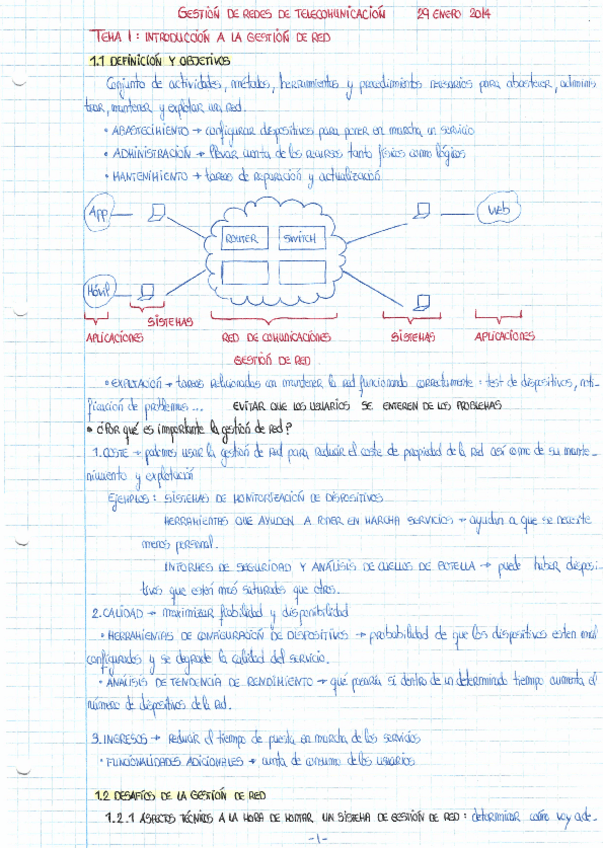 GESTIÓN DE REDES DE TELECOMUNICACIÓN 29 ENERO 2014
TEMA 1: INTRODUCCIÓN A LA GESTIÓN DE RED
1.1 DEFINICIÓN Y OBJETIVOS
Conjunto de actividades, métodos, herramientas y procedimientos necesarios para abastecer, adminis
trar, mantener y explotar una red.
• ABASTECIMIENTO → configurar dispositivos para poner en marcha un servicio
• ADMINISTRACIÓN → llevar cuenta de los recursos tanto físicos como lógicos
• MANTENIMIENTO → tareas de reparación y actualización
App Web
ROUTER SWITCH
Móvil
SISTEMAS
APLICACIONES RED DE COMUNICACIONES SISTEMAS APLICACIONES
GESTIÓN DE RED
• EXPLOTACIÓN → tareas relacionadas con mantener la red funcionando correctamente: test de dispositivos, noti-
ficación de problemas... EVITAR QUE LOS USUARIOS SE ENTEREN DE LOS PROBLEMAS
• ¿Por qué es importante la gestión de red?
1. COSTE → podemos usar la gestión de red para reducir el coste de propiedad de la red así como de su mante-
nimiento y explotación
EJEMPLOS: SISTEMAS DE MONITORIZACIÓN DE DISPOSITIVOS
HERRAMIENTAS QUE AYUDEN A PONER EN MARCHA SERVICIOS → ayudan a que se necesite
menos personal.
INFORMES DE SEGURIDAD Y ANÁLISIS DE CUELLOS DE BOTELLA → puede haber disposi-
tivos que estén más saturados que otros.
2. CALIDAD → maximizar fiabilidad y disponibilidad
• HERRAMIENTAS DE CONFIGURACIÓN DE DISPOSITIVOS → probabilidad de que los dispositivos estén mal
configurados y se degrade la calidad del servicio.
• ANÁLISIS DE TENDENCIA DE RENDIMIENTO → qué pasaría si dentro de un determinado tiempo aumenta el
número de dispositivos de la red.
3. INGRESOS → reducir el tiempo de puesta en marcha de los servicios
• FUNCIONALIDADES ADICIONALES → cuenta de consumo de los usuarios
1.2 DESAFÍOS DE LA GESTIÓN DE RED
1.2.1 ASPECTOS TÉCNICOS A LA HORA DE MONTAR UN SISTEMA DE GESTIÓN DE RED: determinar cómo voy a de-
-1-